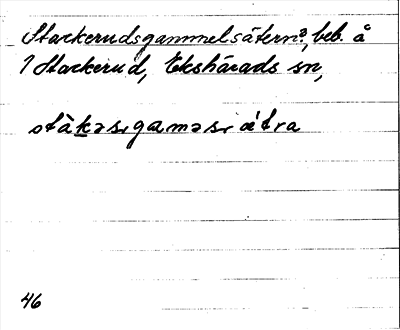 Stackerudsgammelsätern?, beb. å
1 Stackerud, Ekshärads sn,
stàkəsɩgaməsɩ ǽtra
46